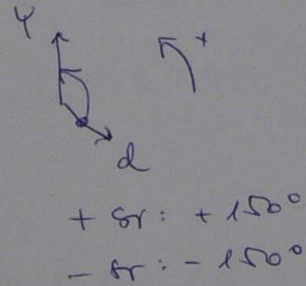 Y
+
d
+ sr: + 150°
- sr: - 150°